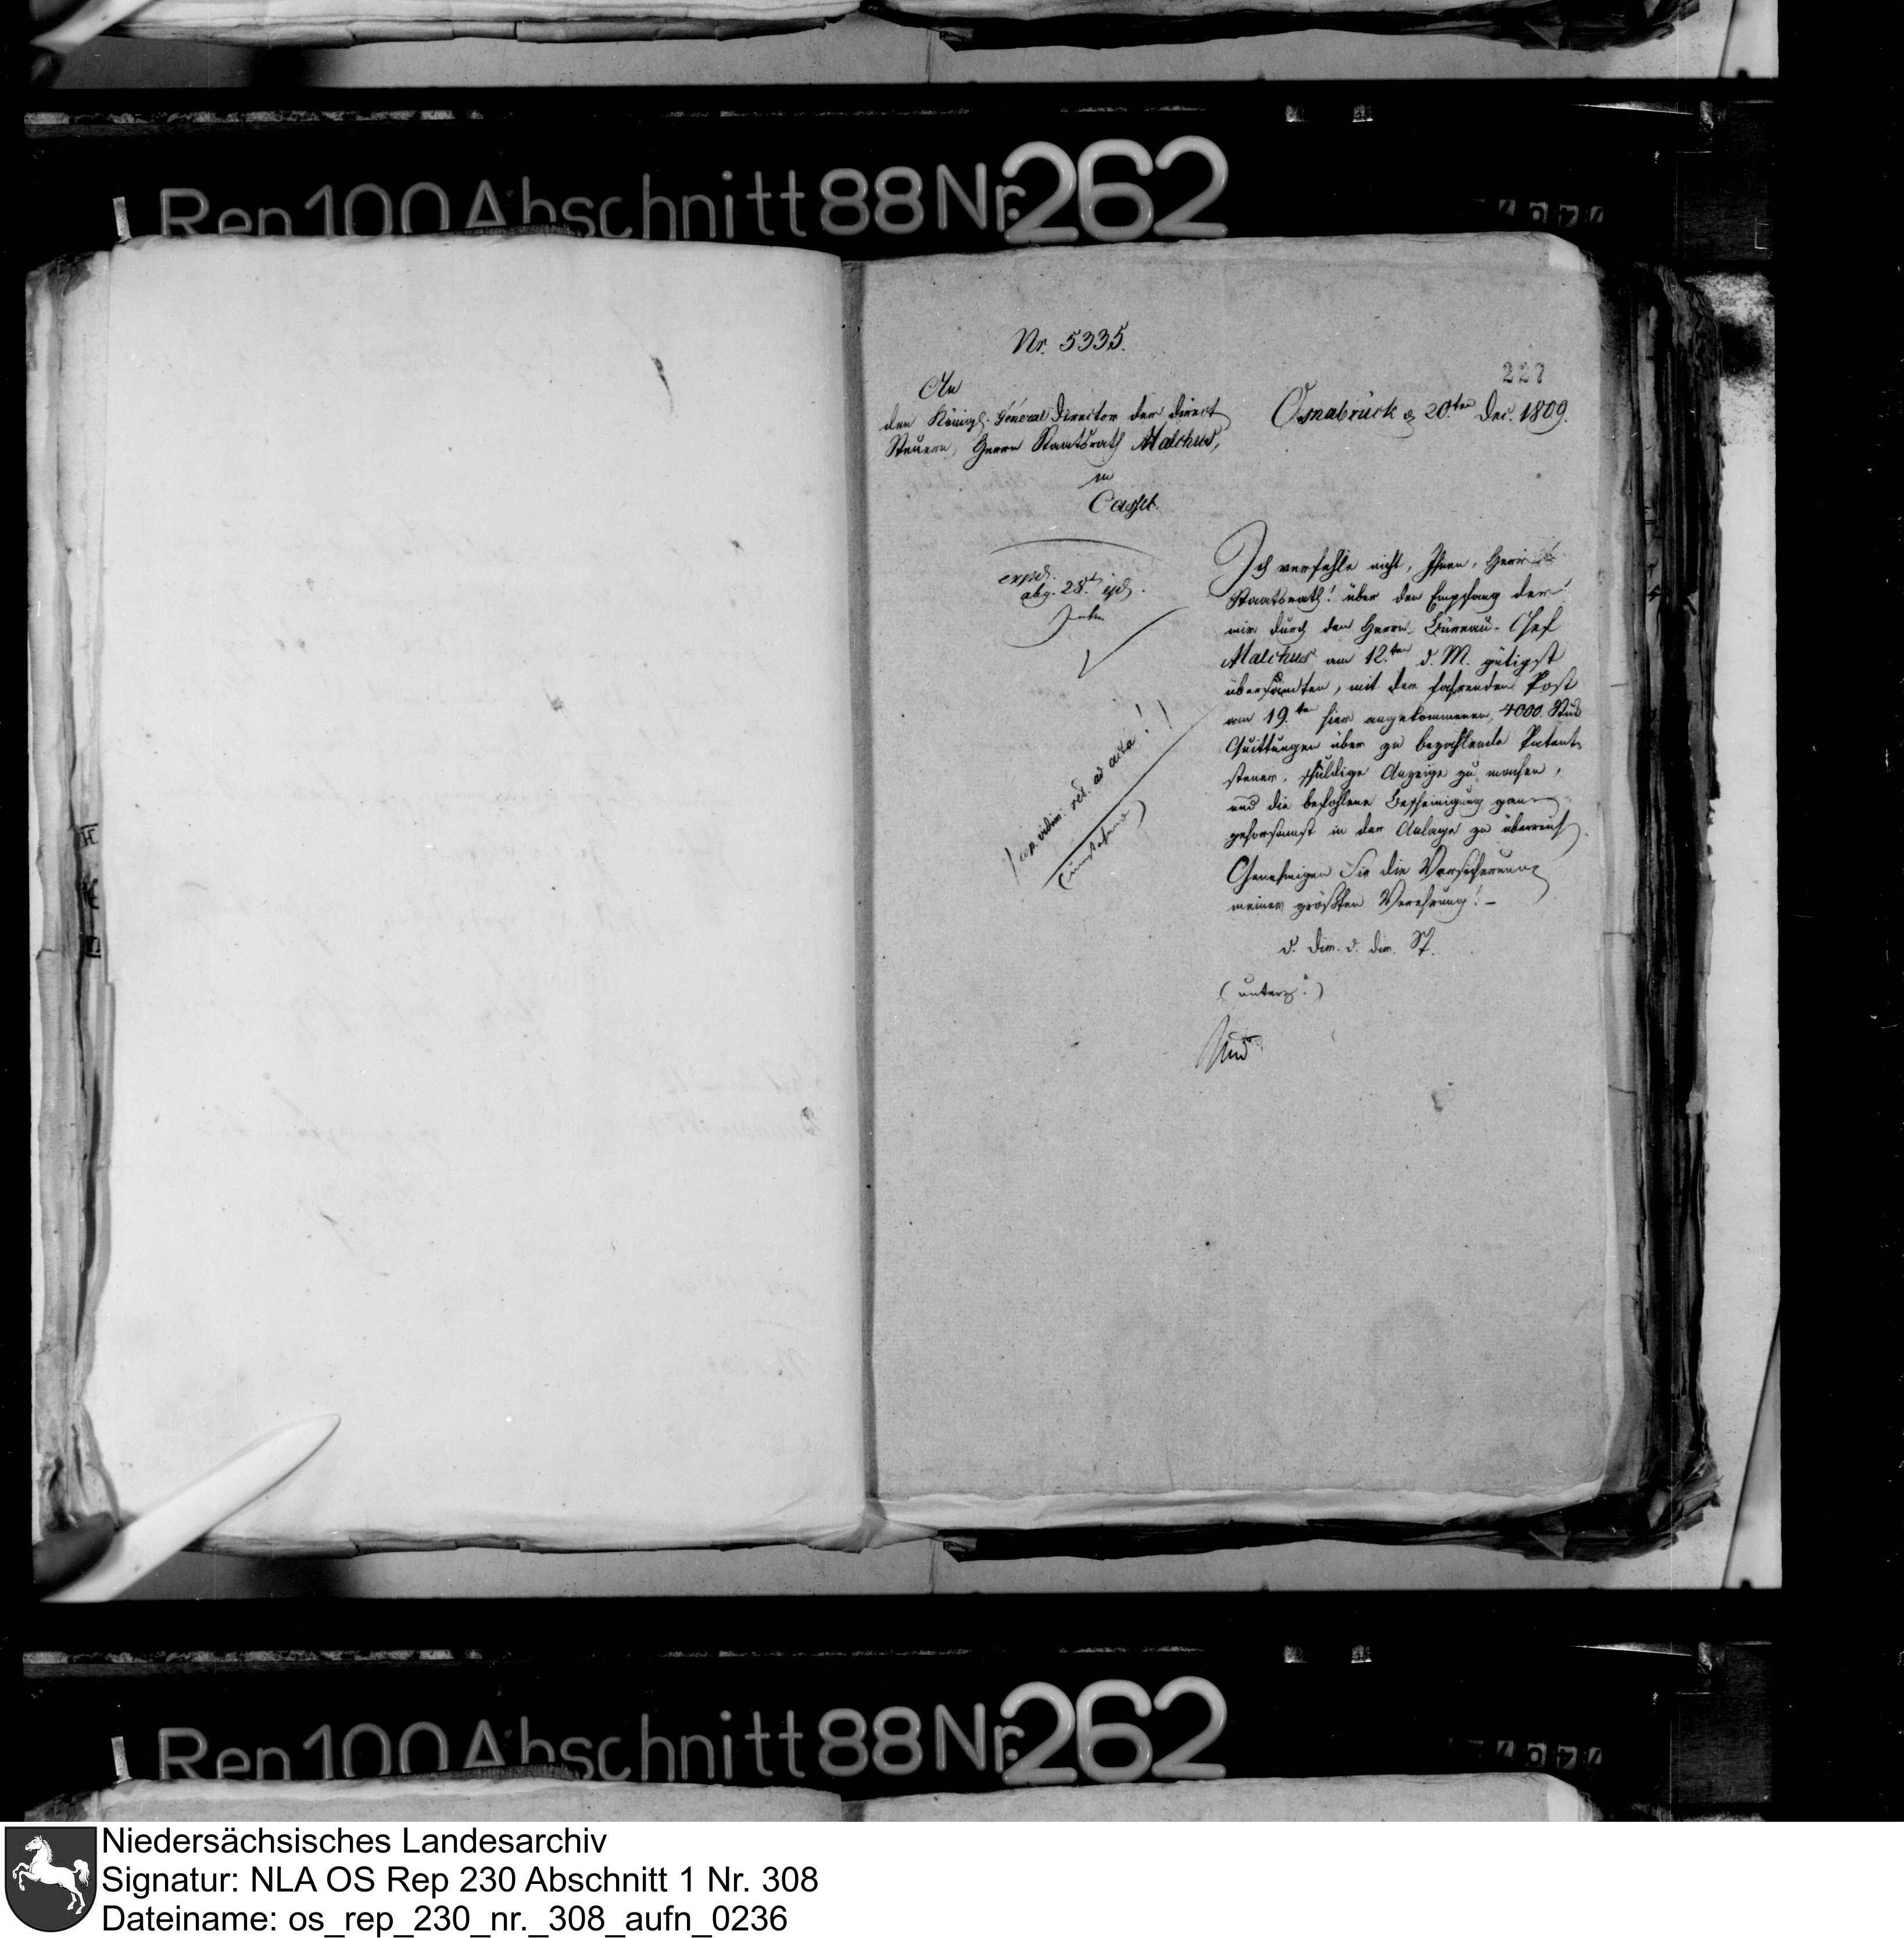 Rep 100 Abschnitt 88 Nr. 262
Nr. 5335.
227
An
den Königl. General Director der direct
Steuern, Herrn Staatsrath Malchus,
in
Cassel.
Osnabrück d. 20.ten Dec. 1809.
exped.
abg. 28.t ejd.
Ich verfehle nicht, Ihnen, Herr
Staatsrath! über den Empfang der
mir durch den Herrn Büreau-Chef
Malchus am 12.ten d. M. gütigst
übersandten, mit der fahrenden Post
am 19.ten hier angekommenen, 4000. Stück
Quittungen über zu bezahlende Patent-
steuer, schuldige Anzeige zu machen,
und die befohlene Bescheinigung ganz
gehorsamst in der Anlage zu überreich.
Genehmigen Sie die Versicherung
meiner größten Verehrung! –
d. Dir. d. dir. St.
(unterz.)
cop. vidim. red. ad acta!
Rep 100 Abschnitt 88 Nr. 262
Niedersächsisches Landesarchiv
Signatur: NLA OS Rep 230 Abschnitt 1 Nr. 308
Dateiname: os_rep_230_nr._308_aufn_0236